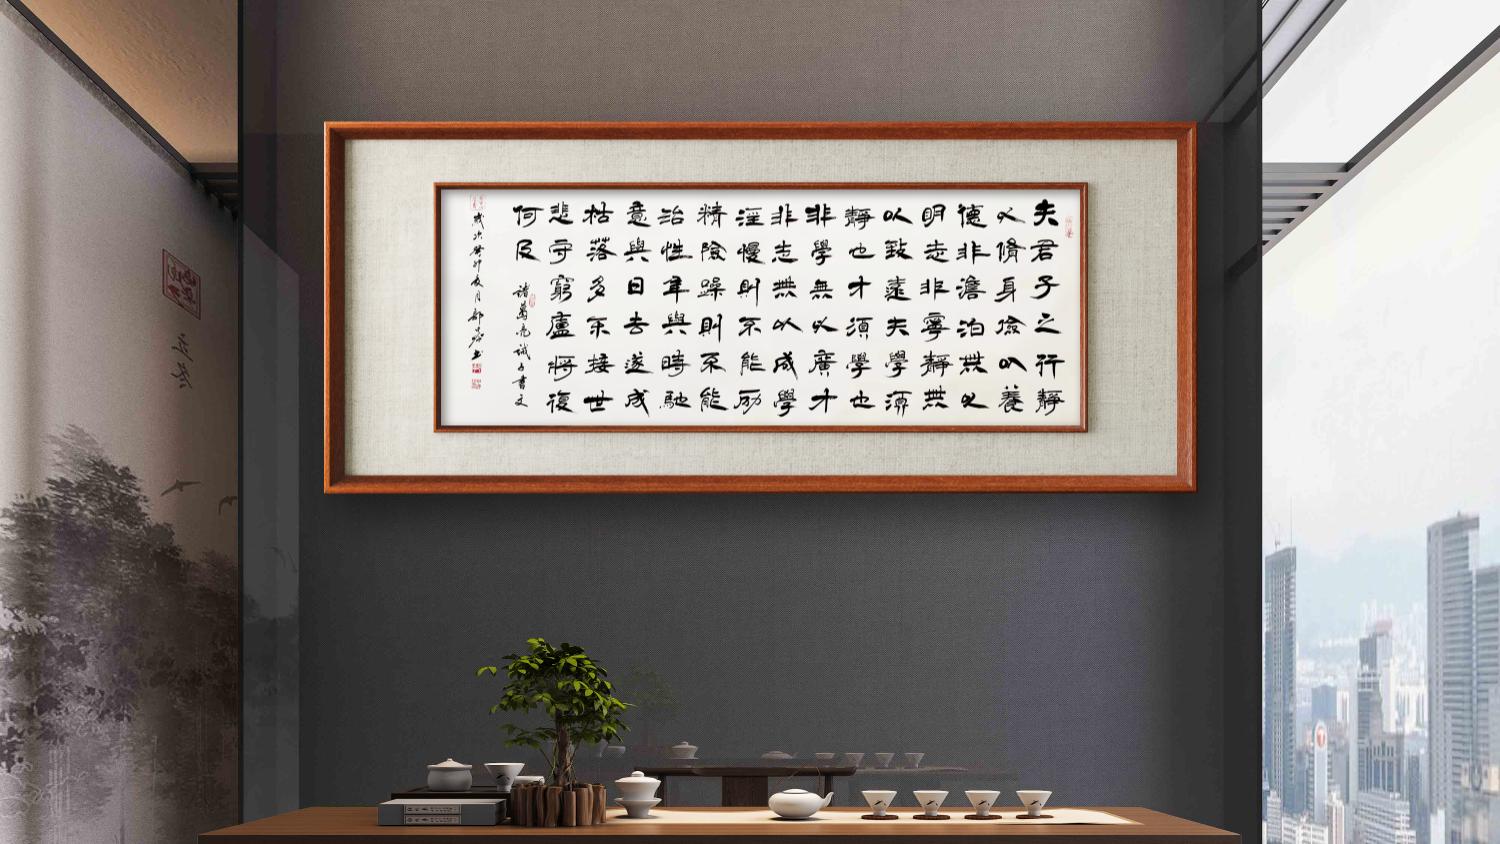 夫君子之行靜
以脩身儉以養
德非澹泊無以
明志非寧靜無
以致遠夫學須
靜也才須學也
非學無以廣才
非志無以成學
淫慢則不能励
精險躁則不能
治性年與時馳
意與日去遂成
枯落多不接世
悲守窮廬將復
何及
諸葛亮誡子書文
歲次癸卯夏月
立冬